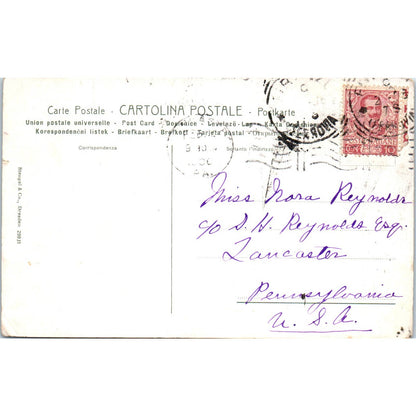 Carte Postale - CARTOLINA POSTALE - Postkarte
Union postale universelle - Post Card - Dopisnice - Levelező-Lap
Korespondenční listek - Briefkaart - Brefkort - Tarjeta postal
Corrispondenza
Soltanto l'indirizzo
FERROVIA
10
Miss Nora Reynolds
c/o S. H. Reynolds Esq.
Lancaster
Pennsylvania
U.S.A.
Stengel & Co., Dresden 29931